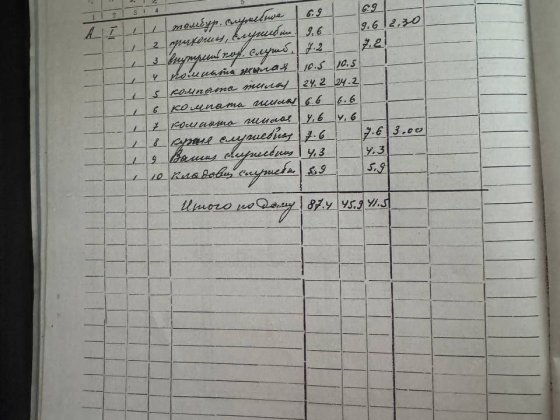 1 2 3 4
А I 1 1 тамбур. служебное 6.9 6.9
1 2 прихожая, служебн. 9.6 9.6 2.30
1 3 внутрений кор. служб. 7.2 7.2
1 4 комната жилая 10.5 10.5
1 5 комната жилая 24.2 24.2
1 6 комната жилая 6.6 6.6
1 7 комната жилая 4.6 4.6
1 8 кухня служебная 7.6 7.6 3.00
1 9 Ванная служебная 4.3 4.3
1 10 кладовая служебн 5.9 5.9
Итого по дому 87.4 45.9 41.5